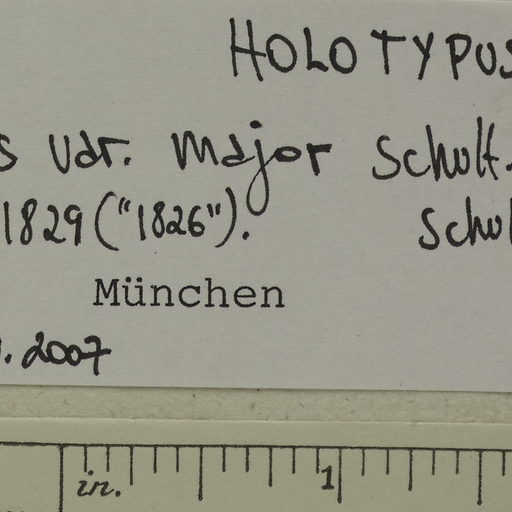 HOLOTYPUS
s var. major Schult.
1829 ("1826"). Schul
München
. 2007
in. 1